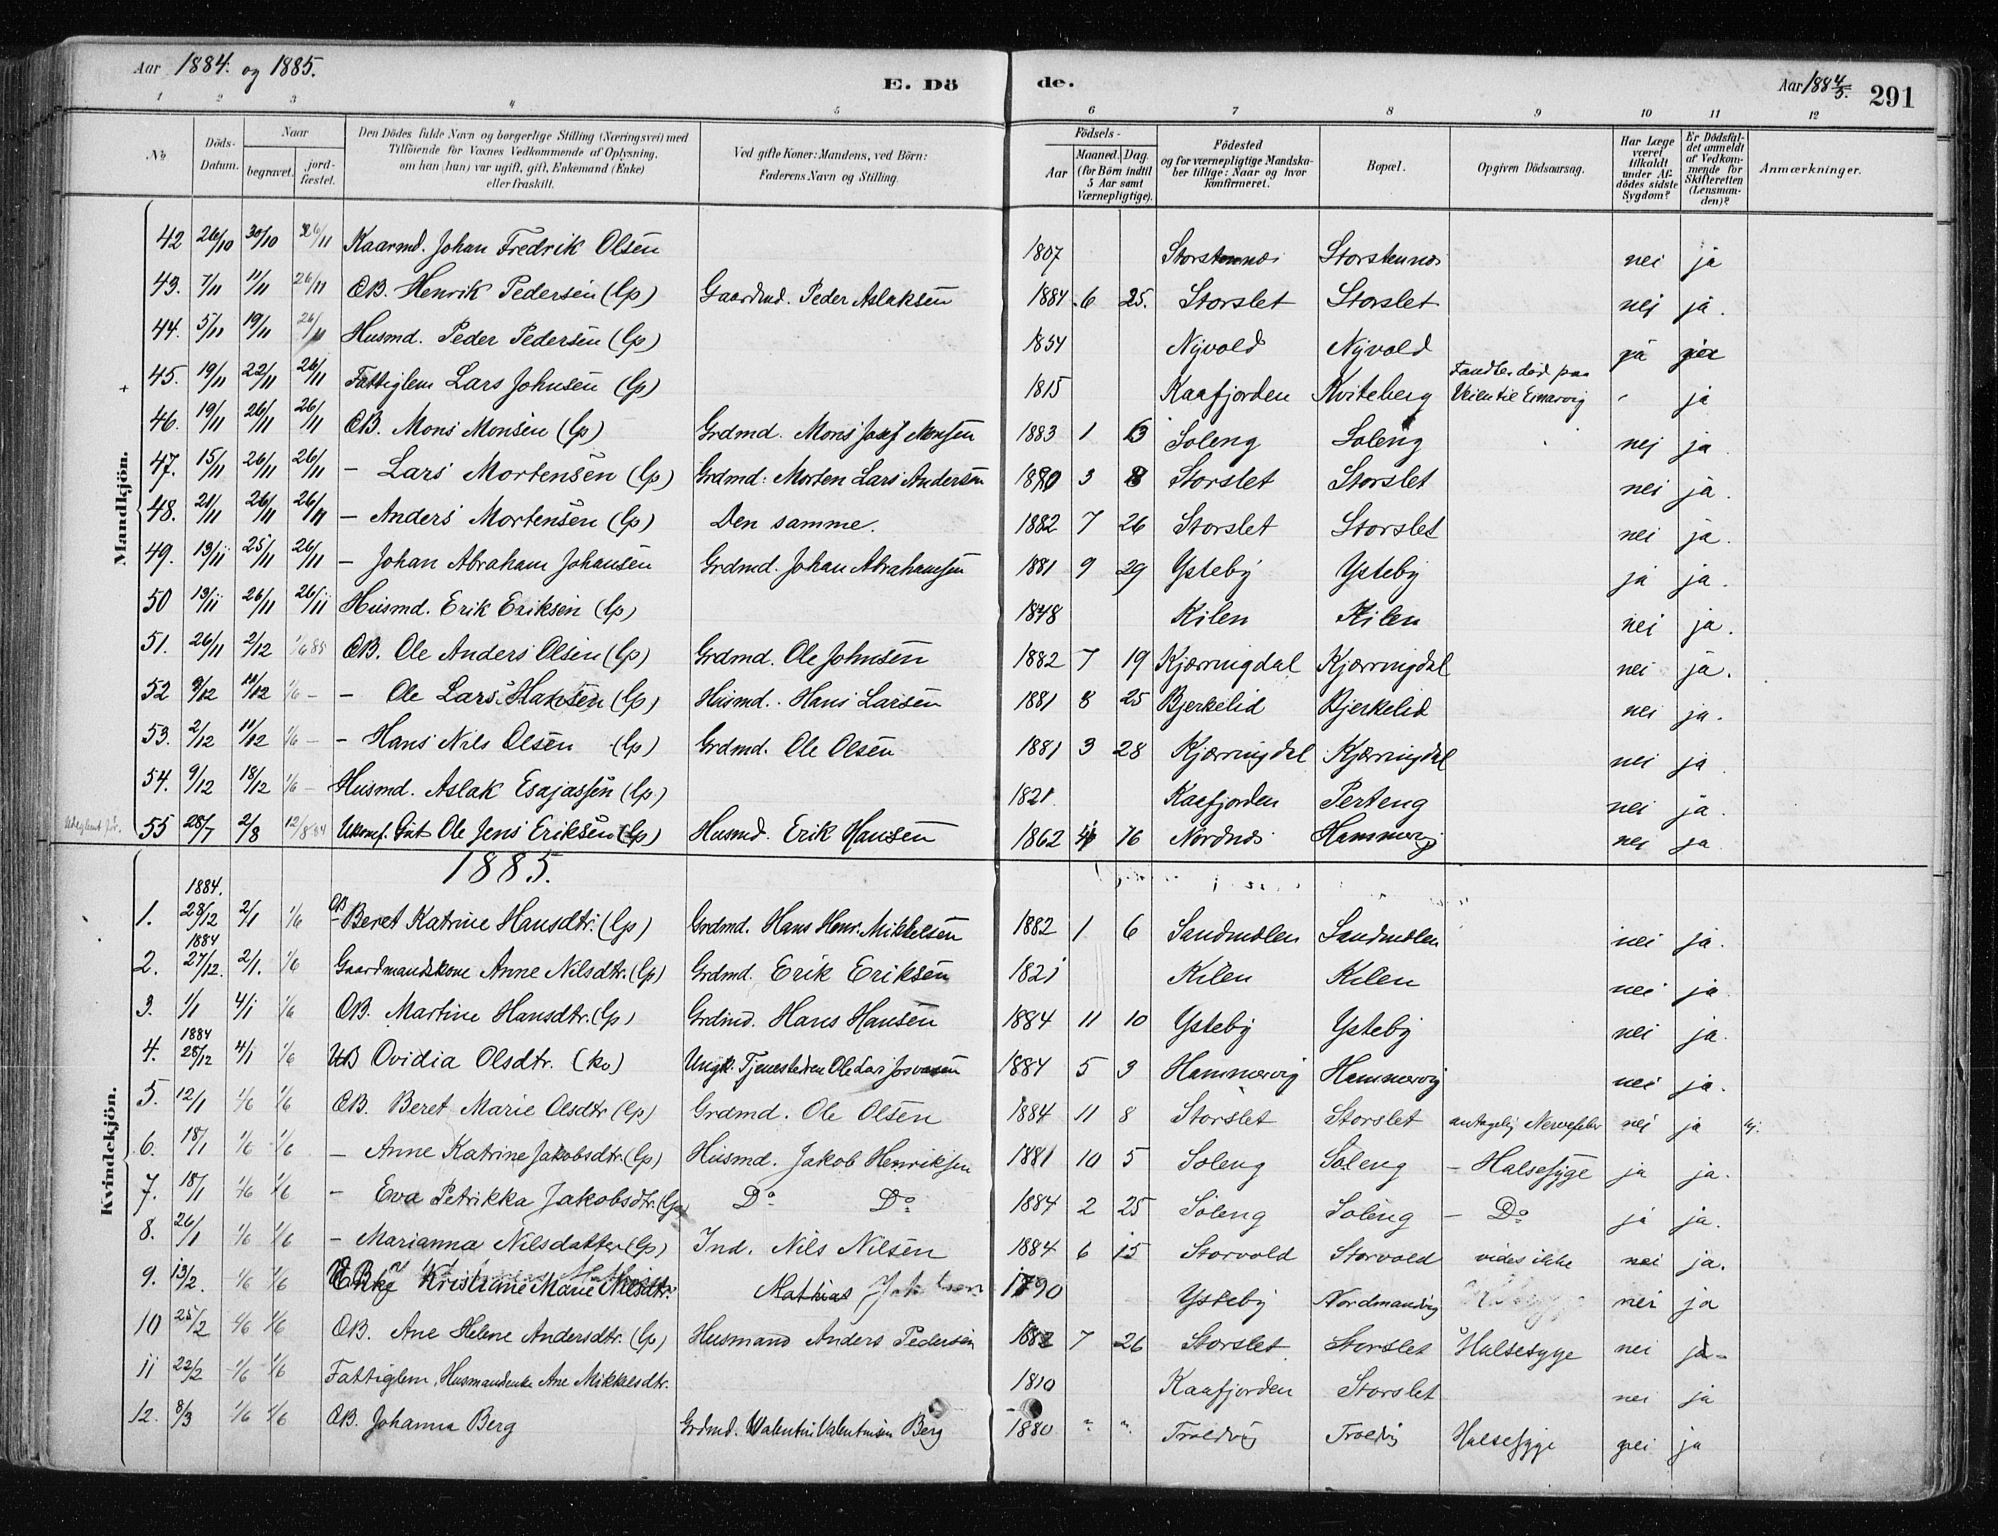 Aar 1884. og 1885.
E. Dö
de.
Aar 1884/5.
291
1 2 3 4 5 6 7 8 9 10 11 12
No
Döds-Datum.
Naar
begravet.
jord-fæstet.
Den Dödes fulde Navn og borgerlige Stilling (Næringsvei) med
Tilføiende for Voxnes Vedkommende af Oplysning,
om han (hun) var ugift, gift, Enkemand (Enke)
eller fraskilt.
Ved gifte Koner: Mandens, ved Börn:
Faderens Navn og Stilling.
Födsels-
Aar
Maaned. Dag.
(for Börn indtil
5 Aar samt
Værnepligtige).
Födested
og for værnepligtige Mandska-
ber tillige: Naar og hvor
konfirmeret.
Bopæl.
Opgiven Dödsaarsag.
Har Læge
været
tilkaldt
under Af-
dödes sidste
Sygdom?
Er Dödsfal-
det anmeldt
af Vedkom-
mende for
Skifteretten
(Lensman-
den)?
Anmærkninger.
Mandkjön.
42 26/10 30/10 26/11 Kaarmd. Johan Fredrik Olsen 1807 Storstennæs Storstennæs nei ja
43. 7/11 11/11 26/11 ÆB. Henrik Pedersen (lp) Gaardmd. Peder Aslaksen 1884 6 25. Storslet Storslet nej ja.
44. 5/11 19/11 26/11 Husmd. Peder Pedersen (lp) 1854 Nyvold Nyvold ja
45. 19/11 22/11 26/11 Fattiglem Lars Johnsen (lp) 1815 Kaafjorden Kviteberg Fandtes død paa Veien til ja
46. 19/11 26/11 26/11 ÆB. Mons Monsen (lp) Grdmd. Mons Josef Monsen 1883 1 Soleng Soleng nej ja
47. 15/11 26/11 26/11 - Lars Mortensen (lp) Grdmd. Morten Lars Andersen 3 8 Storslet Storslet nei ja.
48. 21/11 26/11 26/11 - Anders Mortensen (lp) Den samme. 1882 7 26 Storslet Storslet nei ja.
49. 13/11 25/11 26/11 - Johan Abraham Johansen Grdmd. Johan Abrahamsen 1881 9 29 Ysteby Ysteby ja ja.
50 13/11 26/11 26/11 Husmd. Erik Eriksen (lp) 1848 Kilen Kilen nei ja.
51. 26/11 2/12 1/6 85 ÆB. Ole Anders Olsen (lp) Grdmd. Ole Johnsen 1882 7 19 Kjærringdal Kjærringdal nei ja.
52 9/12 11/12 1/6 - - Ole Lars Hansen (lp) Husmd. Hans Larsen 1881 8 25 Bjerkelid Bjerkelid nei ja.
53. 2/12 11/12 1/6 - - Hans Nils Olsen (lp) Grdmd. Ole Olsen 1881 3 28 Kjærringdal Kjærringdal nei ja
54. 9/12 18/12 1/6 - Husmd. Aslak Esajassen (lp) 1821 Kaafjorden Perteng nei ja.
55 28/7 2/8 12/8 84 Ukonf. Gut Ole Jens Eriksen (lp) Husmd. Erik Hansen 1862 16 Nordnæs Hammervig nei ja
1885.
Kvindekjön.
1. 1884. 28/12 2/1 1/6 ÆB - Beret Katrine Hansdtr. (lp) Grdmd. Hans Henr. Mikkelsen 1882 1 6 Sandmælen Sandmælen nei ja.
2. 1884 27/12. 2/1. 1/6 Gaardmandskone Anne Nilsdtr. (lp) Grdmd. Erik Eriksen 1821 Kilen Kilen nei ja
3. 1/1 4/1 1/6 ÆB. Martine Hansdtr. (lp) Grdmd. Hans Hansen 1884 11 10 Ysteby Ysteby nei ja.
4. 1884 28/12 4/1 1/6 UB Ovidia Olsdtr. (kv) Ungk. 1884 5 3 Hammervig Hammervig nei ja.
5. 12/1 1/6 1/6 ÆB. Beret Marie Olsdtr (lp) Grdmd. Ole Olsen 1884 11 8 Storslet Storslet antagelig Nervefeber nei ja
6. 18/1 1/6 1/6 - Anne Katrine Jakobsdtr. (lp) Husmd. Jakob Henriksen 1881 10 5 Soleng Soleng - Halsesyge ja ja.
7. 18/1 1/6 1/6 - Eva Petrikka Jakobsdtr. (lp) Do Do 1884 2 25 Soleng Soleng - Do ja ja.
8. 26/1 1/6 1/6 - Marianna Nilsdatter (lp) Ind. Nils Nilsen 1884 6 15 Storvold Storvold vides ikke nei ja.
9. 13/2. 1/6 1/6 Kristiane Marie Nilsdtr. Mathias 1790 Ysteby Nordmandvig nei ja
10 25/2 1/6 1/6 ÆB. Ane Helene Andersdtr. (lp) Husmand Anders Pedersen 1882 7 26 Storslet Storslet Halsesyge nei ja
11 22/2 1/6 1/6 Fattiglem, Husmandenke Ane Mikkelsdtr. 1810 Kaafjorden Storslet nei ja
12. 8/3 1/6 1/6 ÆB. Johanna Berg Grdmd. Valentin Valentinsen Berg 1880 " " Troldvig Troldvig Halsesyge nei ja